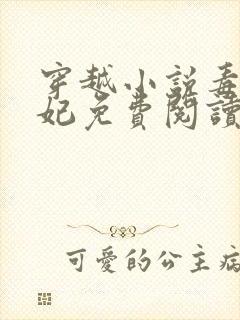 穿越小說毒
妃免費閱讀
可愛的公主病